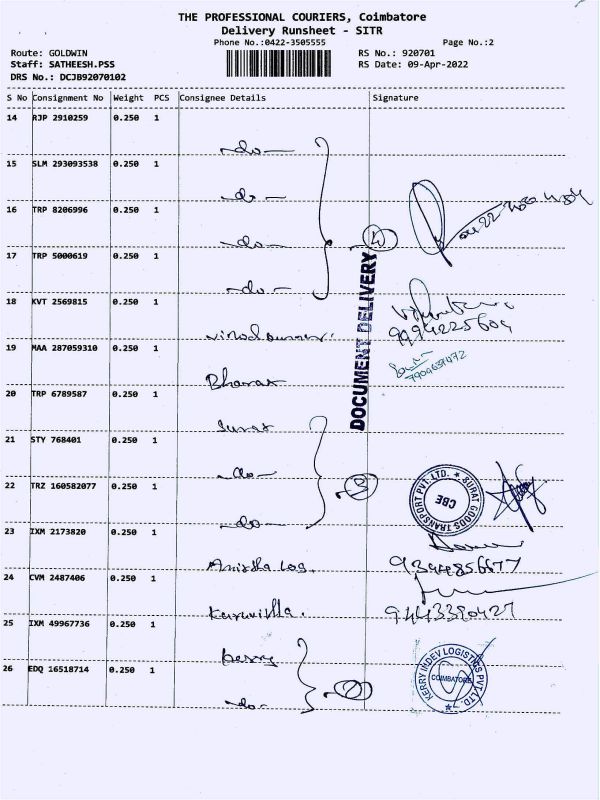 THE PROFESSIONAL COURIERS, Coimbatore
Delivery Runsheet - SITR
Phone No.:0422-3505555 Page No.:2
Route: GOLDWIN RS No.: 920701
Staff: SATHEESH.PSS RS Date: 09-Apr-2022
DRS No.: DCJB92070102
S No Consignment No Weight PCS Consignee Details Signature
14 RJP 2910259 0.250 1
-do-
15 SLM 293093538 0.250 1
-do-
16 TRP 8206996 0.250 1
-do- 4
17 TRP 5000619 0.250 1
-do-
DOCUMENT DELIVERY
18 KVT 2569815 0.250 1
9994225604
19 MAA 287059310 0.250 1
Bharat
20 TRP 6789587 0.250 1
Surat
21 STY 768401 0.250 1
-do-
22 TRZ 160582077 0.250 1
-do- 3
SURAT GOODS TRANSPORT PVT. LTD. ★
CBE
23 IXM 2173820 0.250 1
Log. 9344856677
24 CVM 2487406 0.250 1
9443390427
25 IXM 49967736 0.250 1
kerry
26 EDQ 16518714 0.250 1
-do- 2
KERRY INDEV LOGISTICS PVT. LTD. ★
COIMBATORE